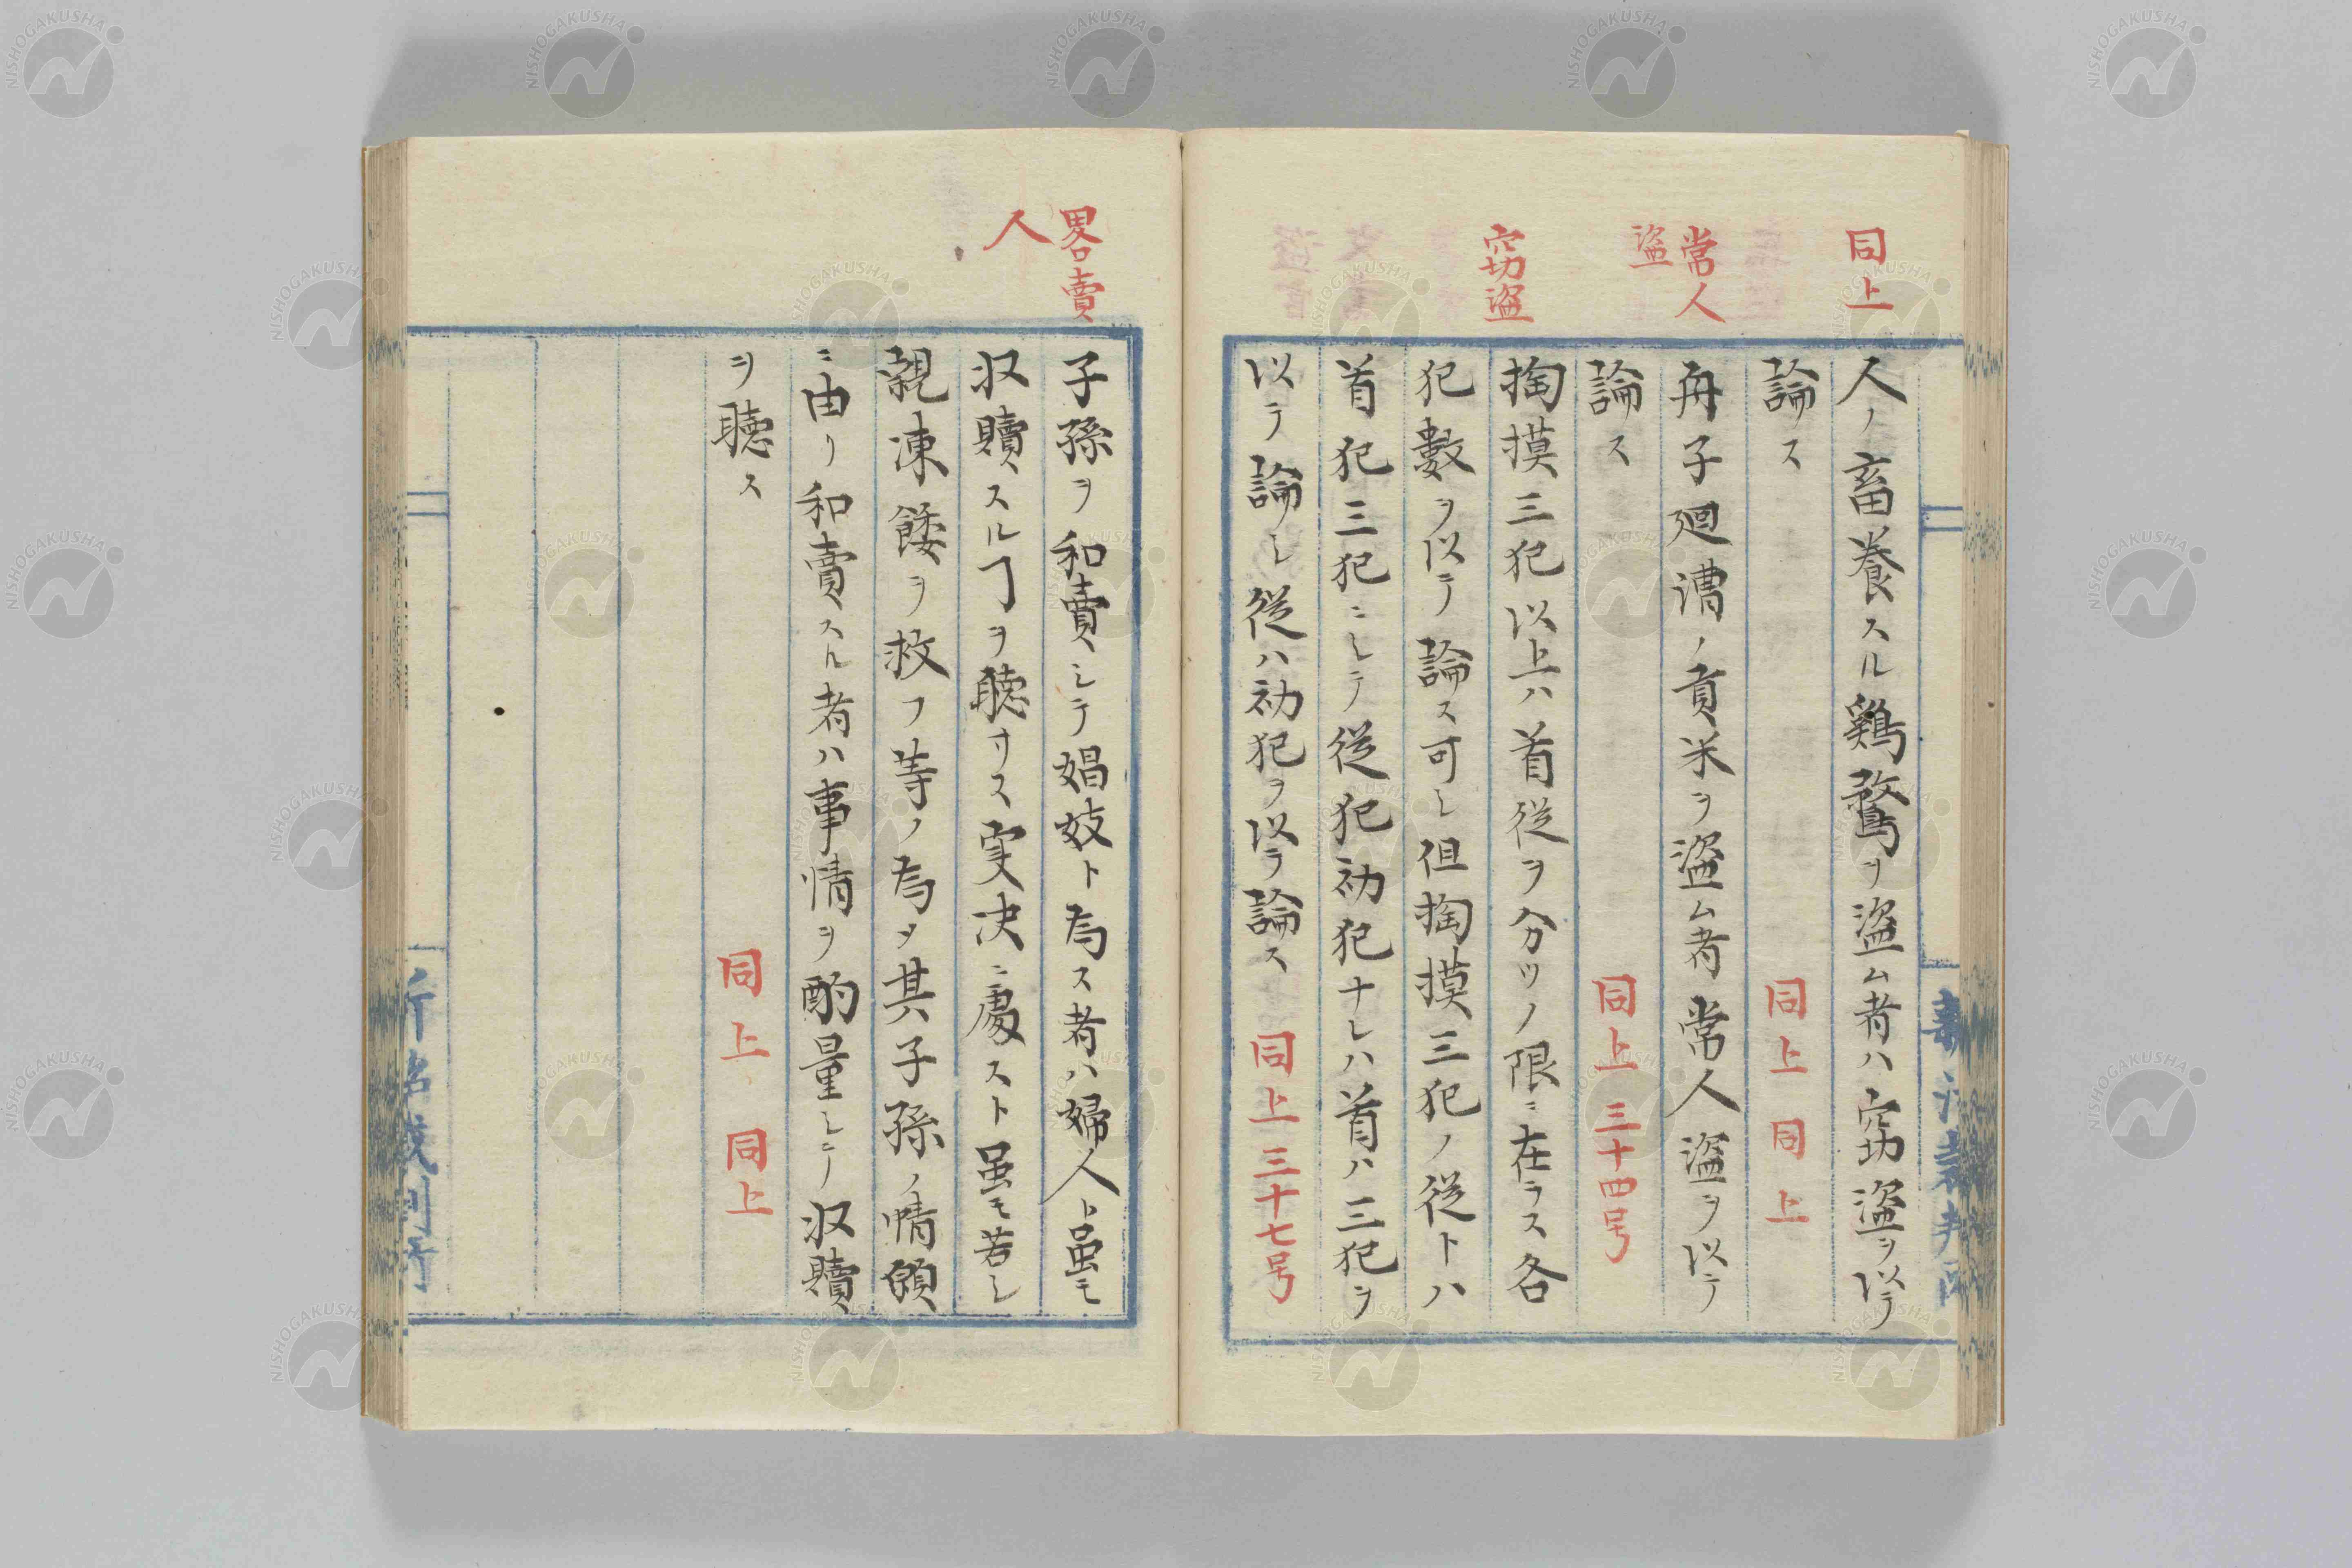 同上
人ノ畜養スル鷄鶩ヲ盗ム者ハ窃盗ヲ以テ
論ス　同上　同上
常人
盗
舟子廻漕ノ貢米ヲ盗ム者常人盗ヲ以テ
論ス　同上三十四号
窃盗
掏摸三犯以上ハ首従ヲ分ツノ限ニ在ラス各
犯數ヲ以テ論ス可シ但掏摸三犯ノ従トハ
首犯三犯ニシテ従犯初犯ナレハ首ハ三犯ヲ
以テ論シ従ハ初犯ヲ以テ論ス　同上三十七号
畧賣
人
子孫ヲ和賣シテ娼妓ト為ス者ハ婦人ト虽モ
収贖スルヿヲ聴サス実决ニ處スト虽モ若シ
親凍餧ヲ救フ等ノ為メ其子孫ノ情願
ニ由リ和賣スル者ハ事情ヲ酌量シテ収贖
ヲ聴ス　同上　同上
NISHOGAKUSHA